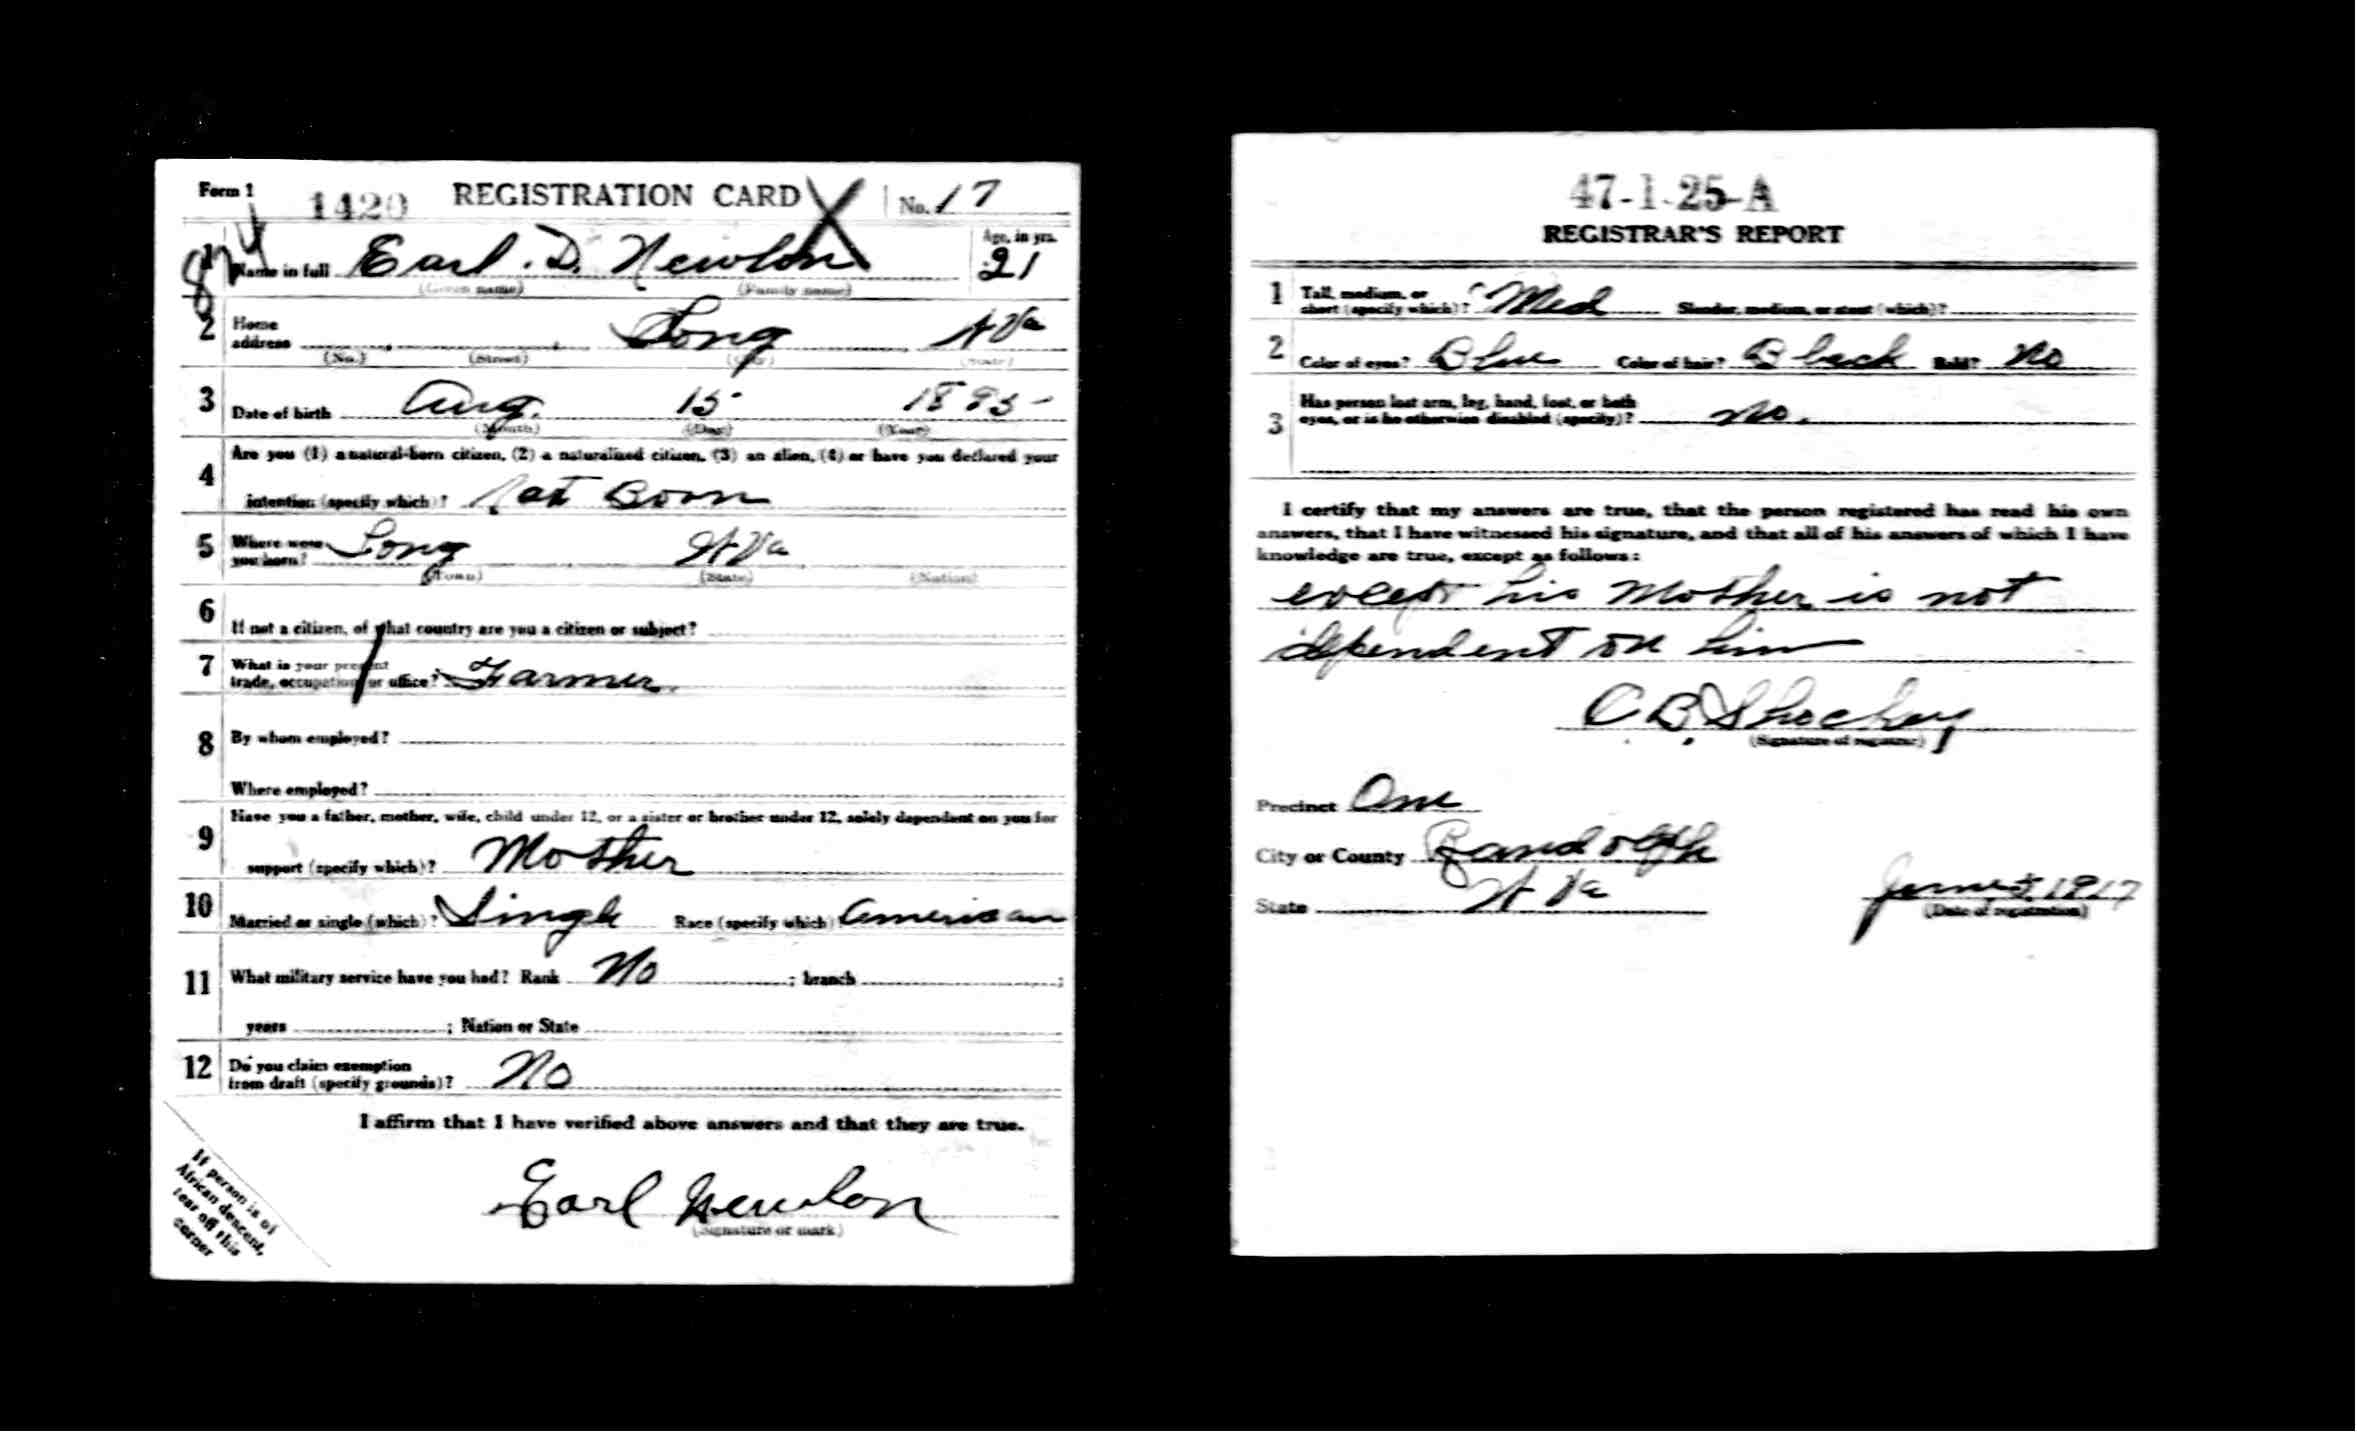 Form 1 1420 REGISTRATION CARD X No. 17
1 Name in full Earl. D. Newlon Age, in yrs. 21
(Given name) (Family name)
2 Home address Long W Va
(No.) (Street) (City) (State)
3 Date of birth Aug. 15 1895
(Month) (Day) (Year)
4 Are you (1) a natural-born citizen, (2) a naturalized citizen, (3) an alien, (4) or have you declared your
intention (specify which)? Nat Born
5 Where were you born? Long W Va
(Town) (State) (Nation)
6 If not a citizen, of what country are you a citizen or subject?
7 What is your present
trade, occupation or office? Farmer.
8 By whom employed?
Where employed?
9 Have you a father, mother, wife, child under 12, or a sister or brother under 12, solely dependent on you for
support (specify which)? Mother
10 Married or single (which)? Single Race (specify which)? American
11 What military service have you had? Rank No ; branch ;
years ; Nation or State
12 Do you claim exemption
from draft (specify grounds)? No
I affirm that I have verified above answers and that they are true.
Earl Newlon
(Signature or mark)
If person is of
African descent,
tear off this
corner
47-1-25-A
REGISTRAR'S REPORT
1 Tall, medium, or
short (specify which)? Med Slender, medium, or stout (which)?
2 Color of eyes? Blue Color of hair? Black Bald? No
3 Has person lost arm, leg, hand, foot, or both
eyes, or is he otherwise disabled (specify)? No.
I certify that my answers are true, that the person registered has read his own
answers, that I have witnessed his signature, and that all of his answers of which I have
knowledge are true, except as follows:
except his Mother is not
dependent on him
C B Shockey
(Signature of registrar)
Precinct One
City or County Randolph
State W Va June 5, 1917
(Date of registration)